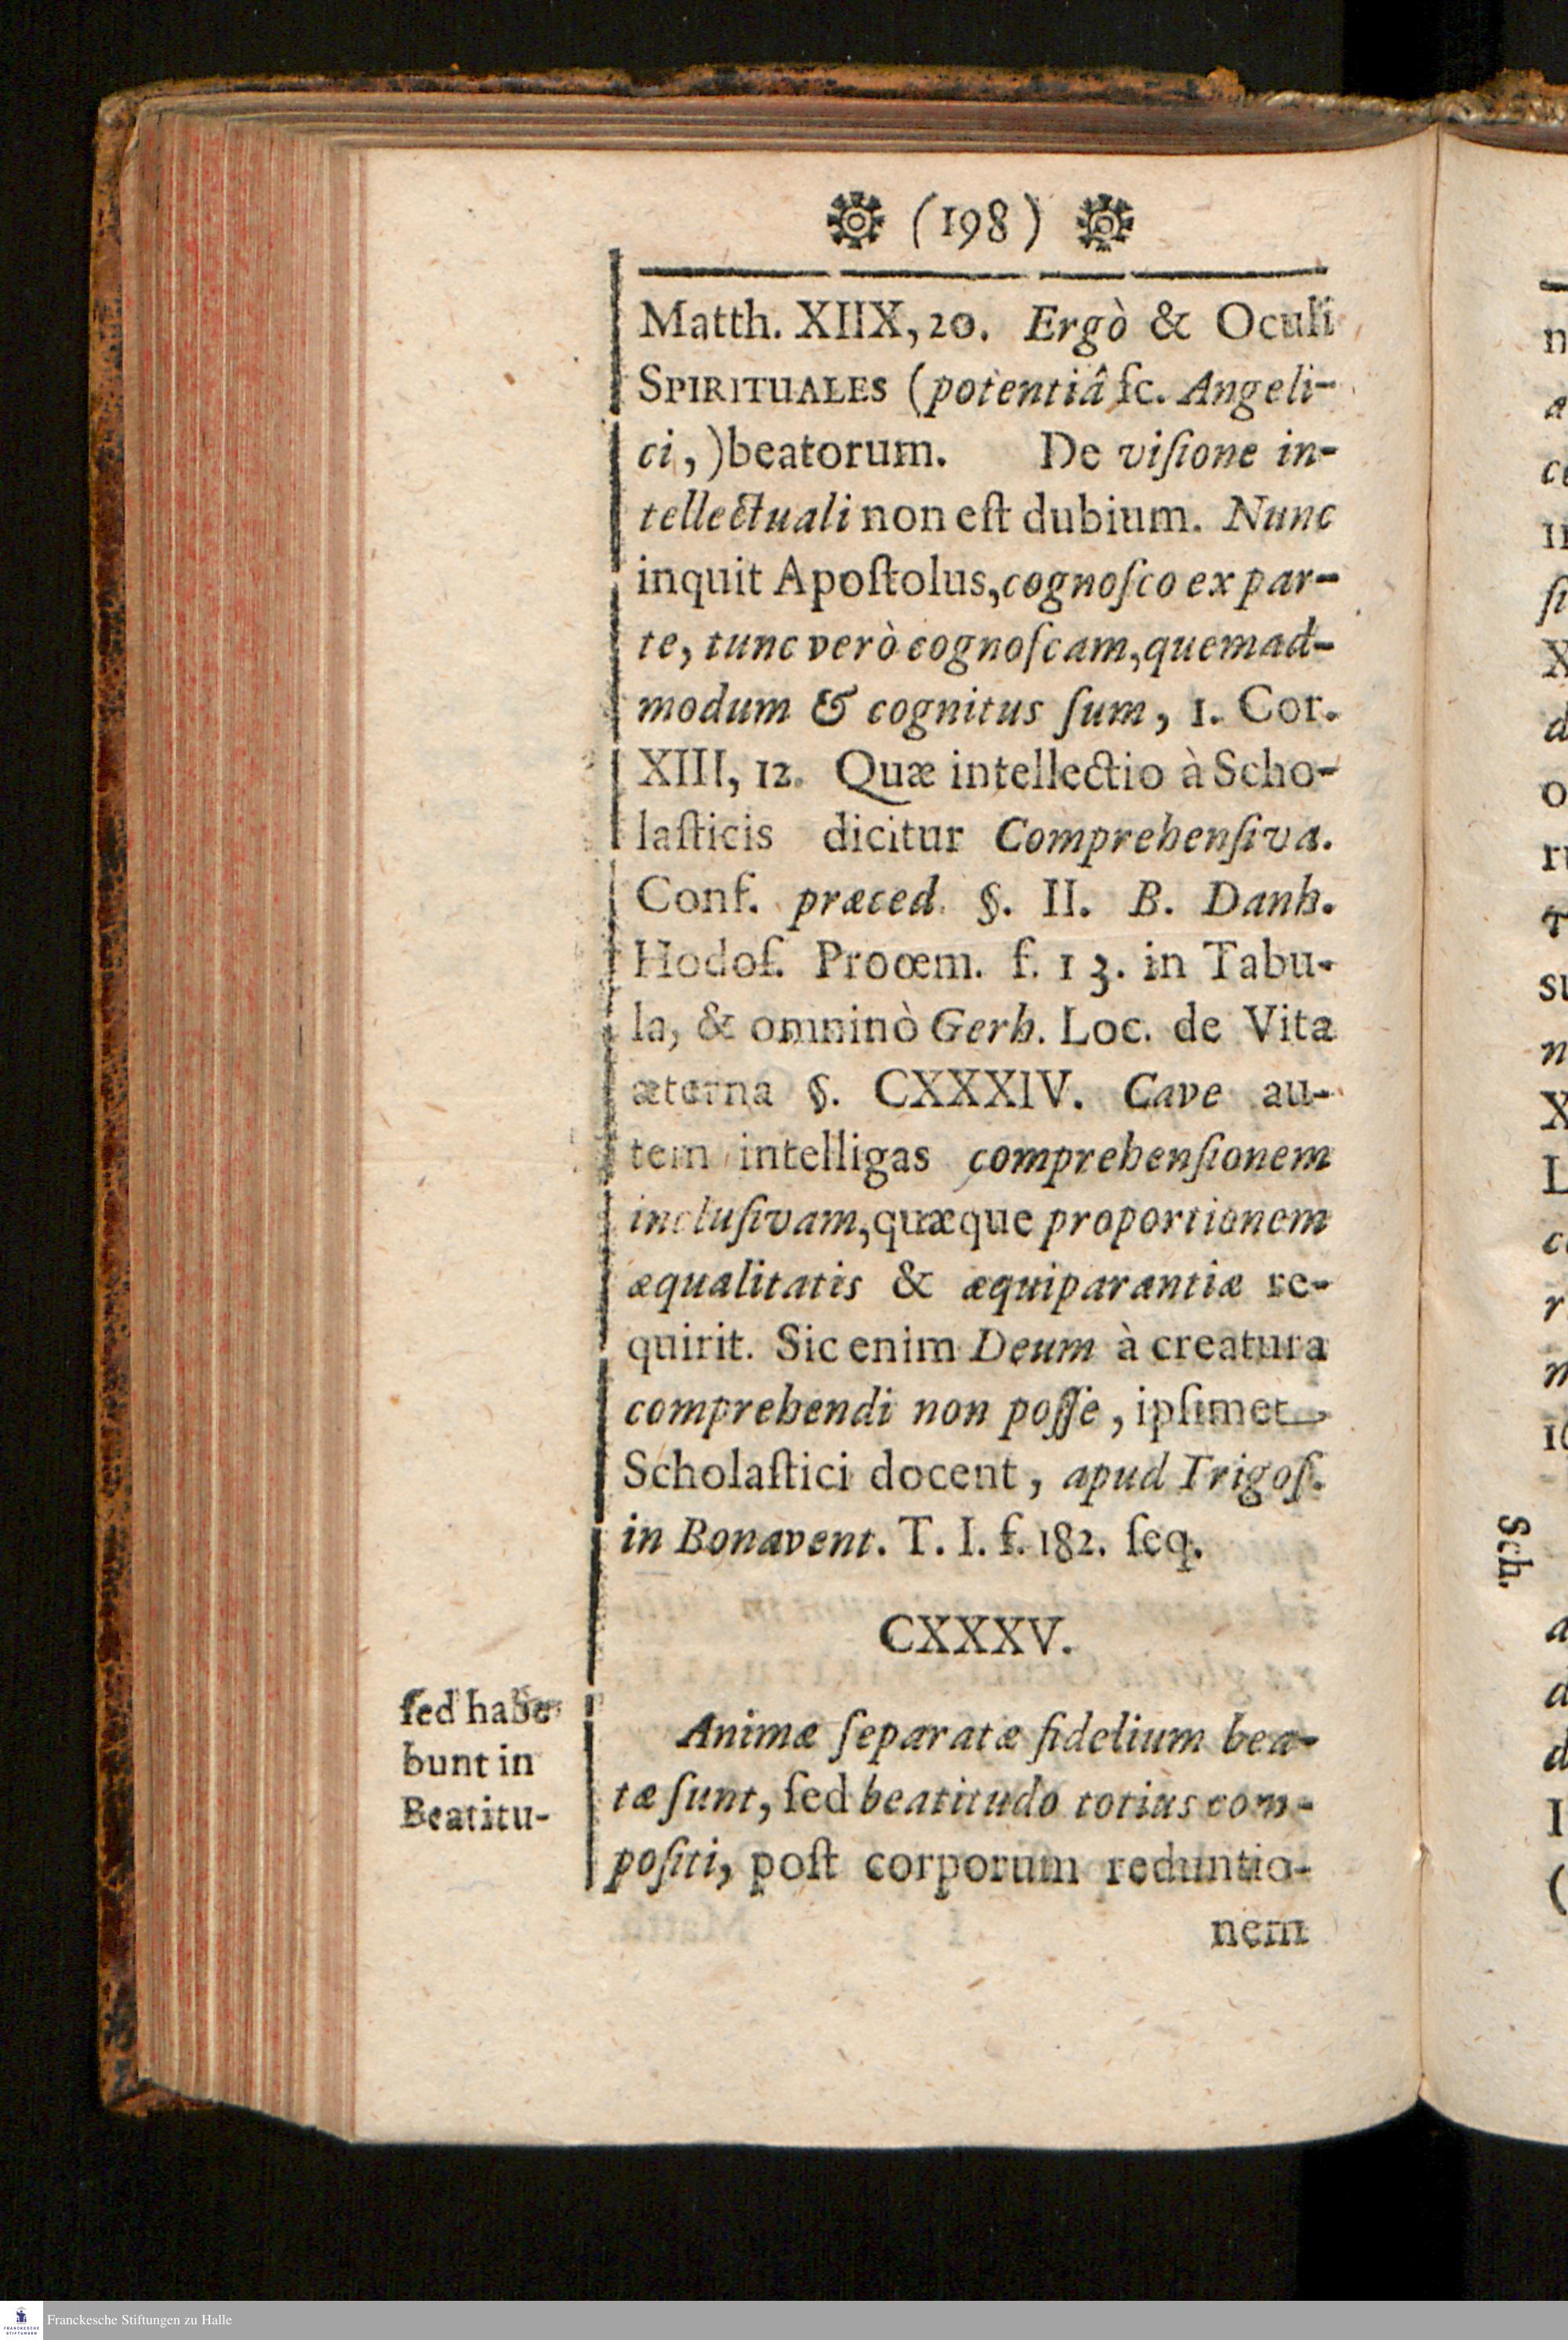 (198)
Matth. XIIX, 20. Ergò & Oculi
SPIRITUALES (potentiâ ſc. Angeli-
ci,) beatorum. De viſione in-
tellectuali non eſt dubium. Nunc
inquit Apoſtolus, cognoſco ex par-
te, tunc verò cognoſcam, quemad-
modum & cognitus ſum, 1. Cor.
XIII, 12. Quæ intellectio à Scho-
laſticis dicitur Comprehenſiva.
Conf. præced. §. II. B. Danh.
Hodoſ. Proœm. f. 13. in Tabu-
la, & omninò Gerh. Loc. de Vita
æterna §. CXXXIV. Cave au-
tem intelligas comprehenſionem
incluſivam, quæque proportionem
æqualitatis & æquiparantiæ re-
quirit. Sic enim Deum à creatura
comprehendi non poſſe, ipſimet
Scholaſtici docent, apud Trigoſ.
in Bonavent. T. I. f. 182. ſeq.
CXXXV.
ſed habe
bunt in
Beatitu-
Animæ ſeparatæ fidelium bea-
tæ ſunt, ſed beatitudo totius com-
poſiti, poſt corporum reduntio-
nem
Sch.
Franckesche Stiftungen zu Halle